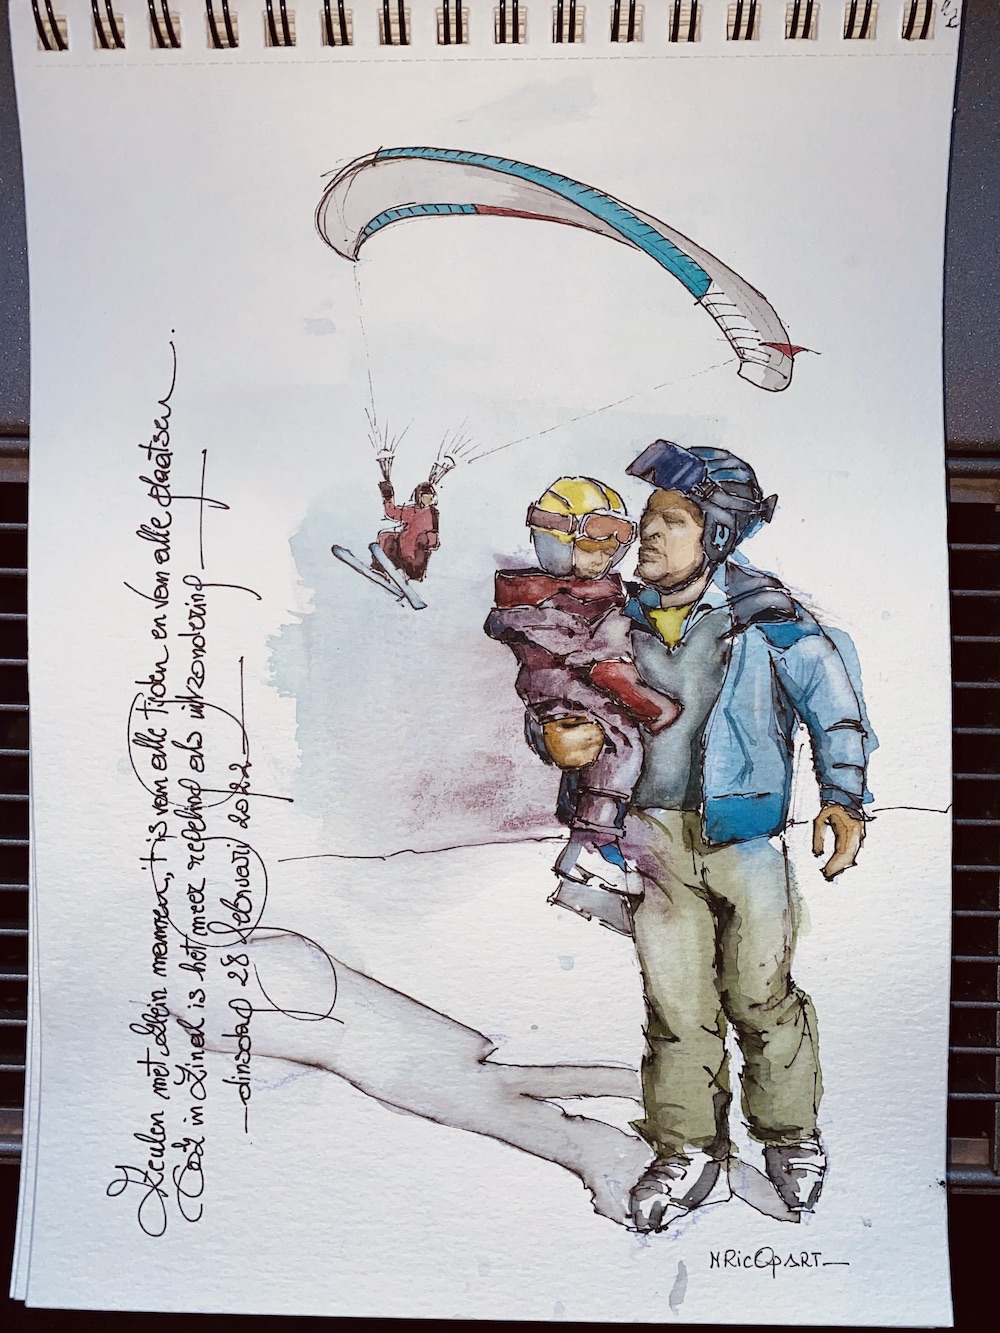 Zeulen met klein mannen, 't is van alle tijden en van alle plaatsen.
Ook in Zinal is het meer regelmd als uitzondering
— dinsdag 28 februari 2022 —
NRicOpART